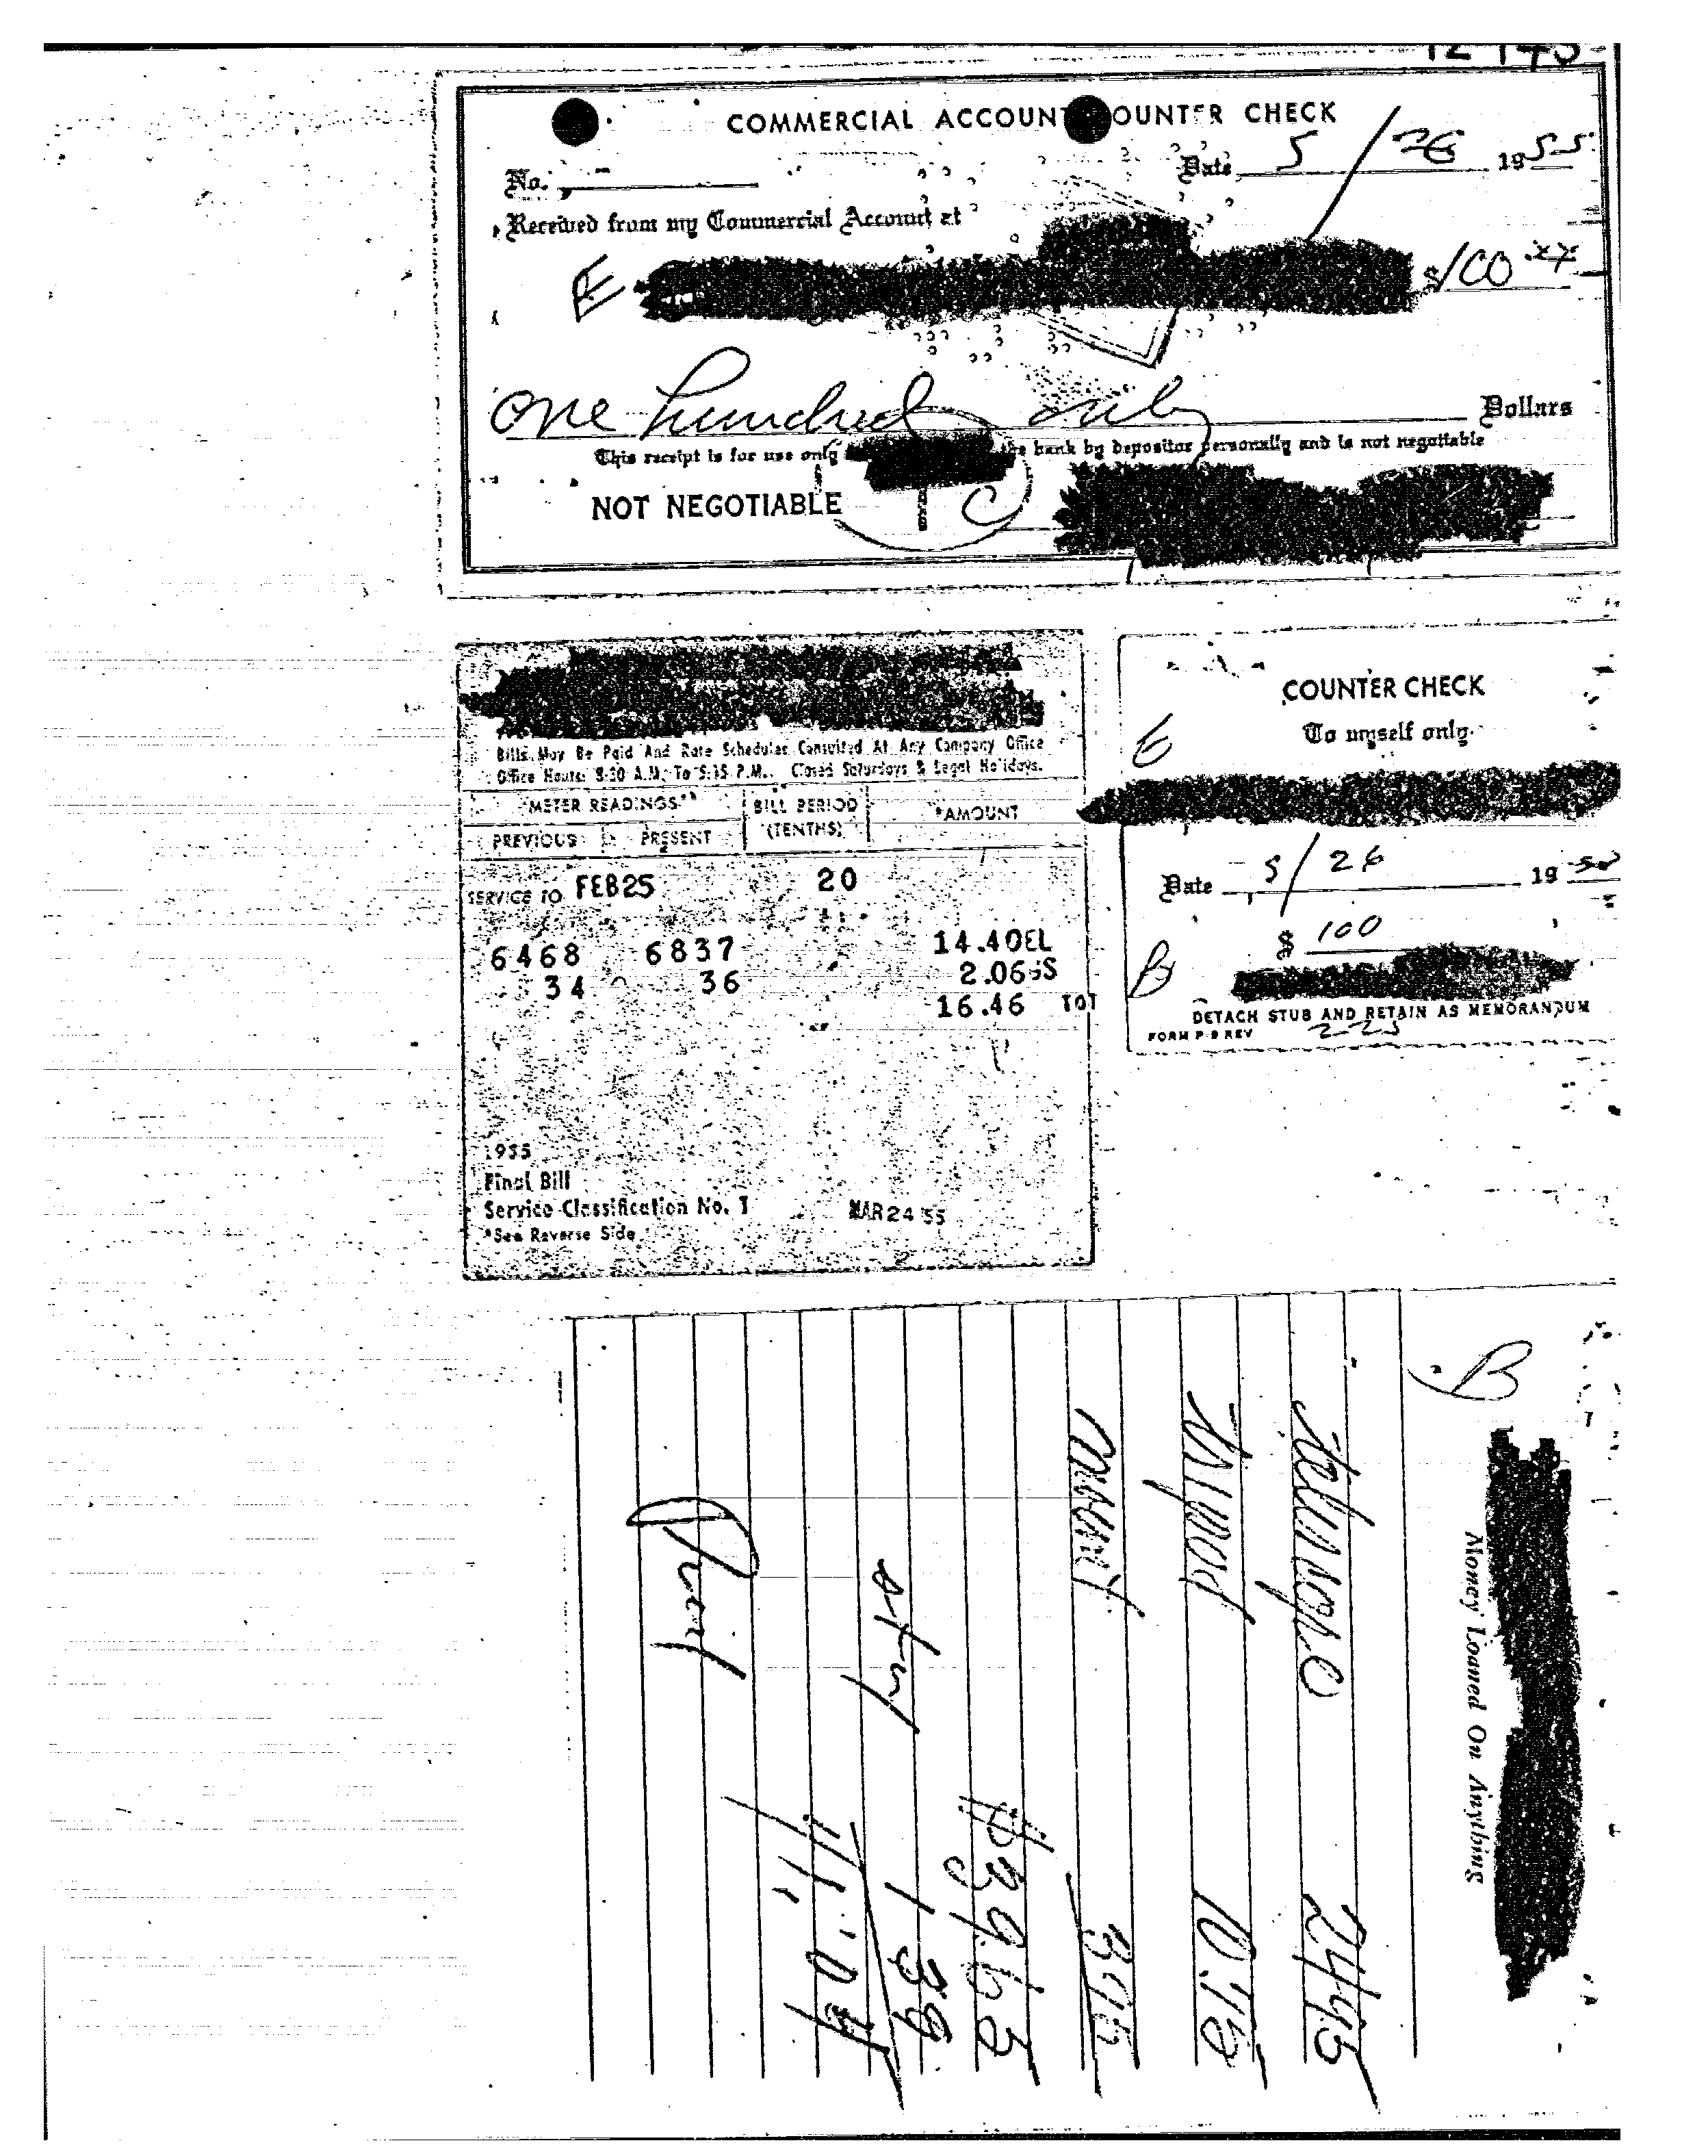 12143
COMMERCIAL ACCOUNT COUNTER CHECK
No. Date 5/26 1955
Received from my Commercial Account at
E $100.xx
One hundred only Dollars
This receipt is for use only the bank by depositor personally and is not negotiable
NOT NEGOTIABLE
Bills May Be Paid And Rate Schedules Consulted At Any Company Office
Office Hours: 8:30 A.M. To 5:15 P.M. Closed Saturdays & Legal Holidays.
METER READINGS** BILL PERIOD (TENTHS) *AMOUNT
PREVIOUS PRESENT
SERVICE TO FEB25 20
6468 6837 14.40EL
34 36 2.06GS
16.46 TOT
1935
Final Bill
Service Classification No. 1 MAR 24 55
*See Reverse Side
COUNTER CHECK
To myself only
E
Date 5/26 19
$ 100
B
DETACH STUB AND RETAIN AS MEMORANDUM
FORM P-9 REV 225
B
Money Loaned On Anything
24.95
Tripod 10.75
Mount 3.95
$39.65
1 39
41.04